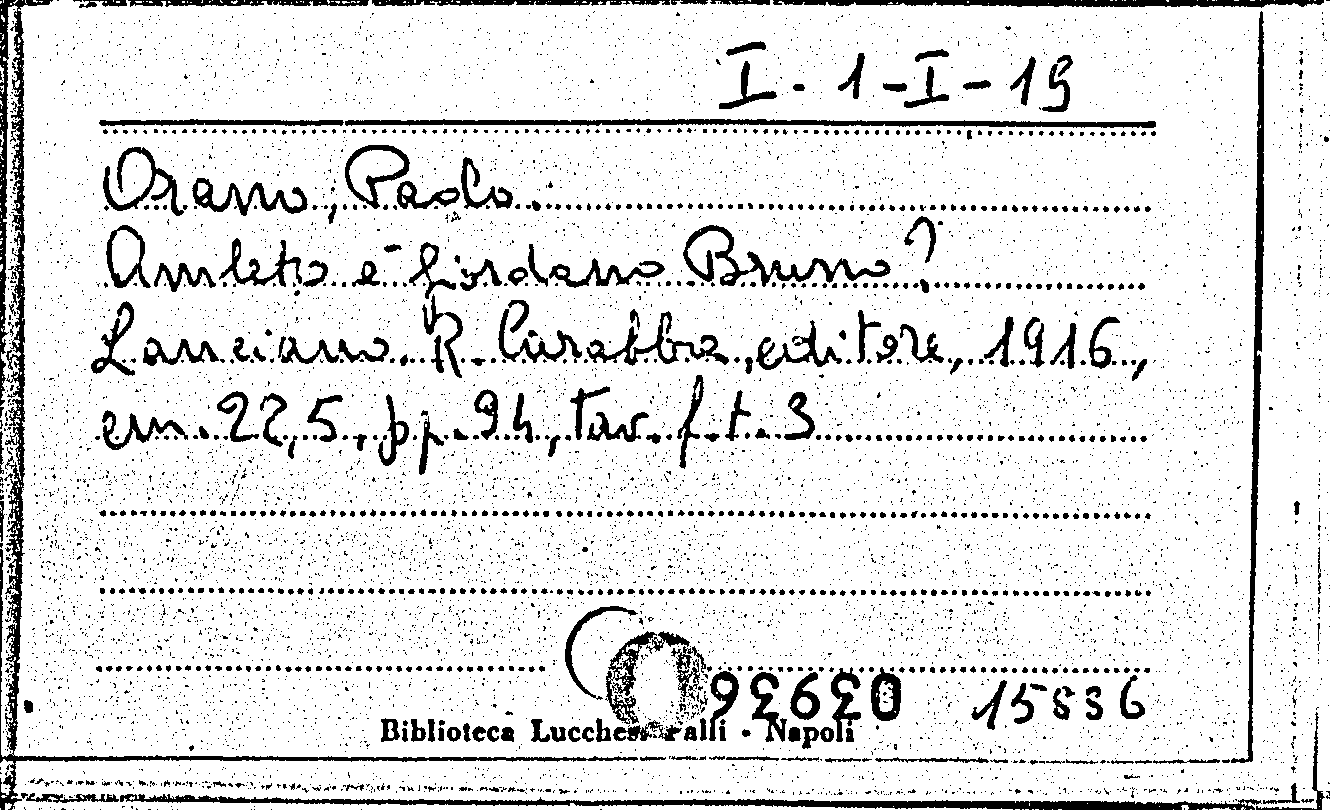 I-1-I-19
Orano, Paolo.
Amleto è Giordano Bruno?
Lanciano. R. Carabba, editore, 1916,
cm. 22,5, pp. 94, tav. f.t. 3
15836
Biblioteca Lucchesi Palli - Napoli